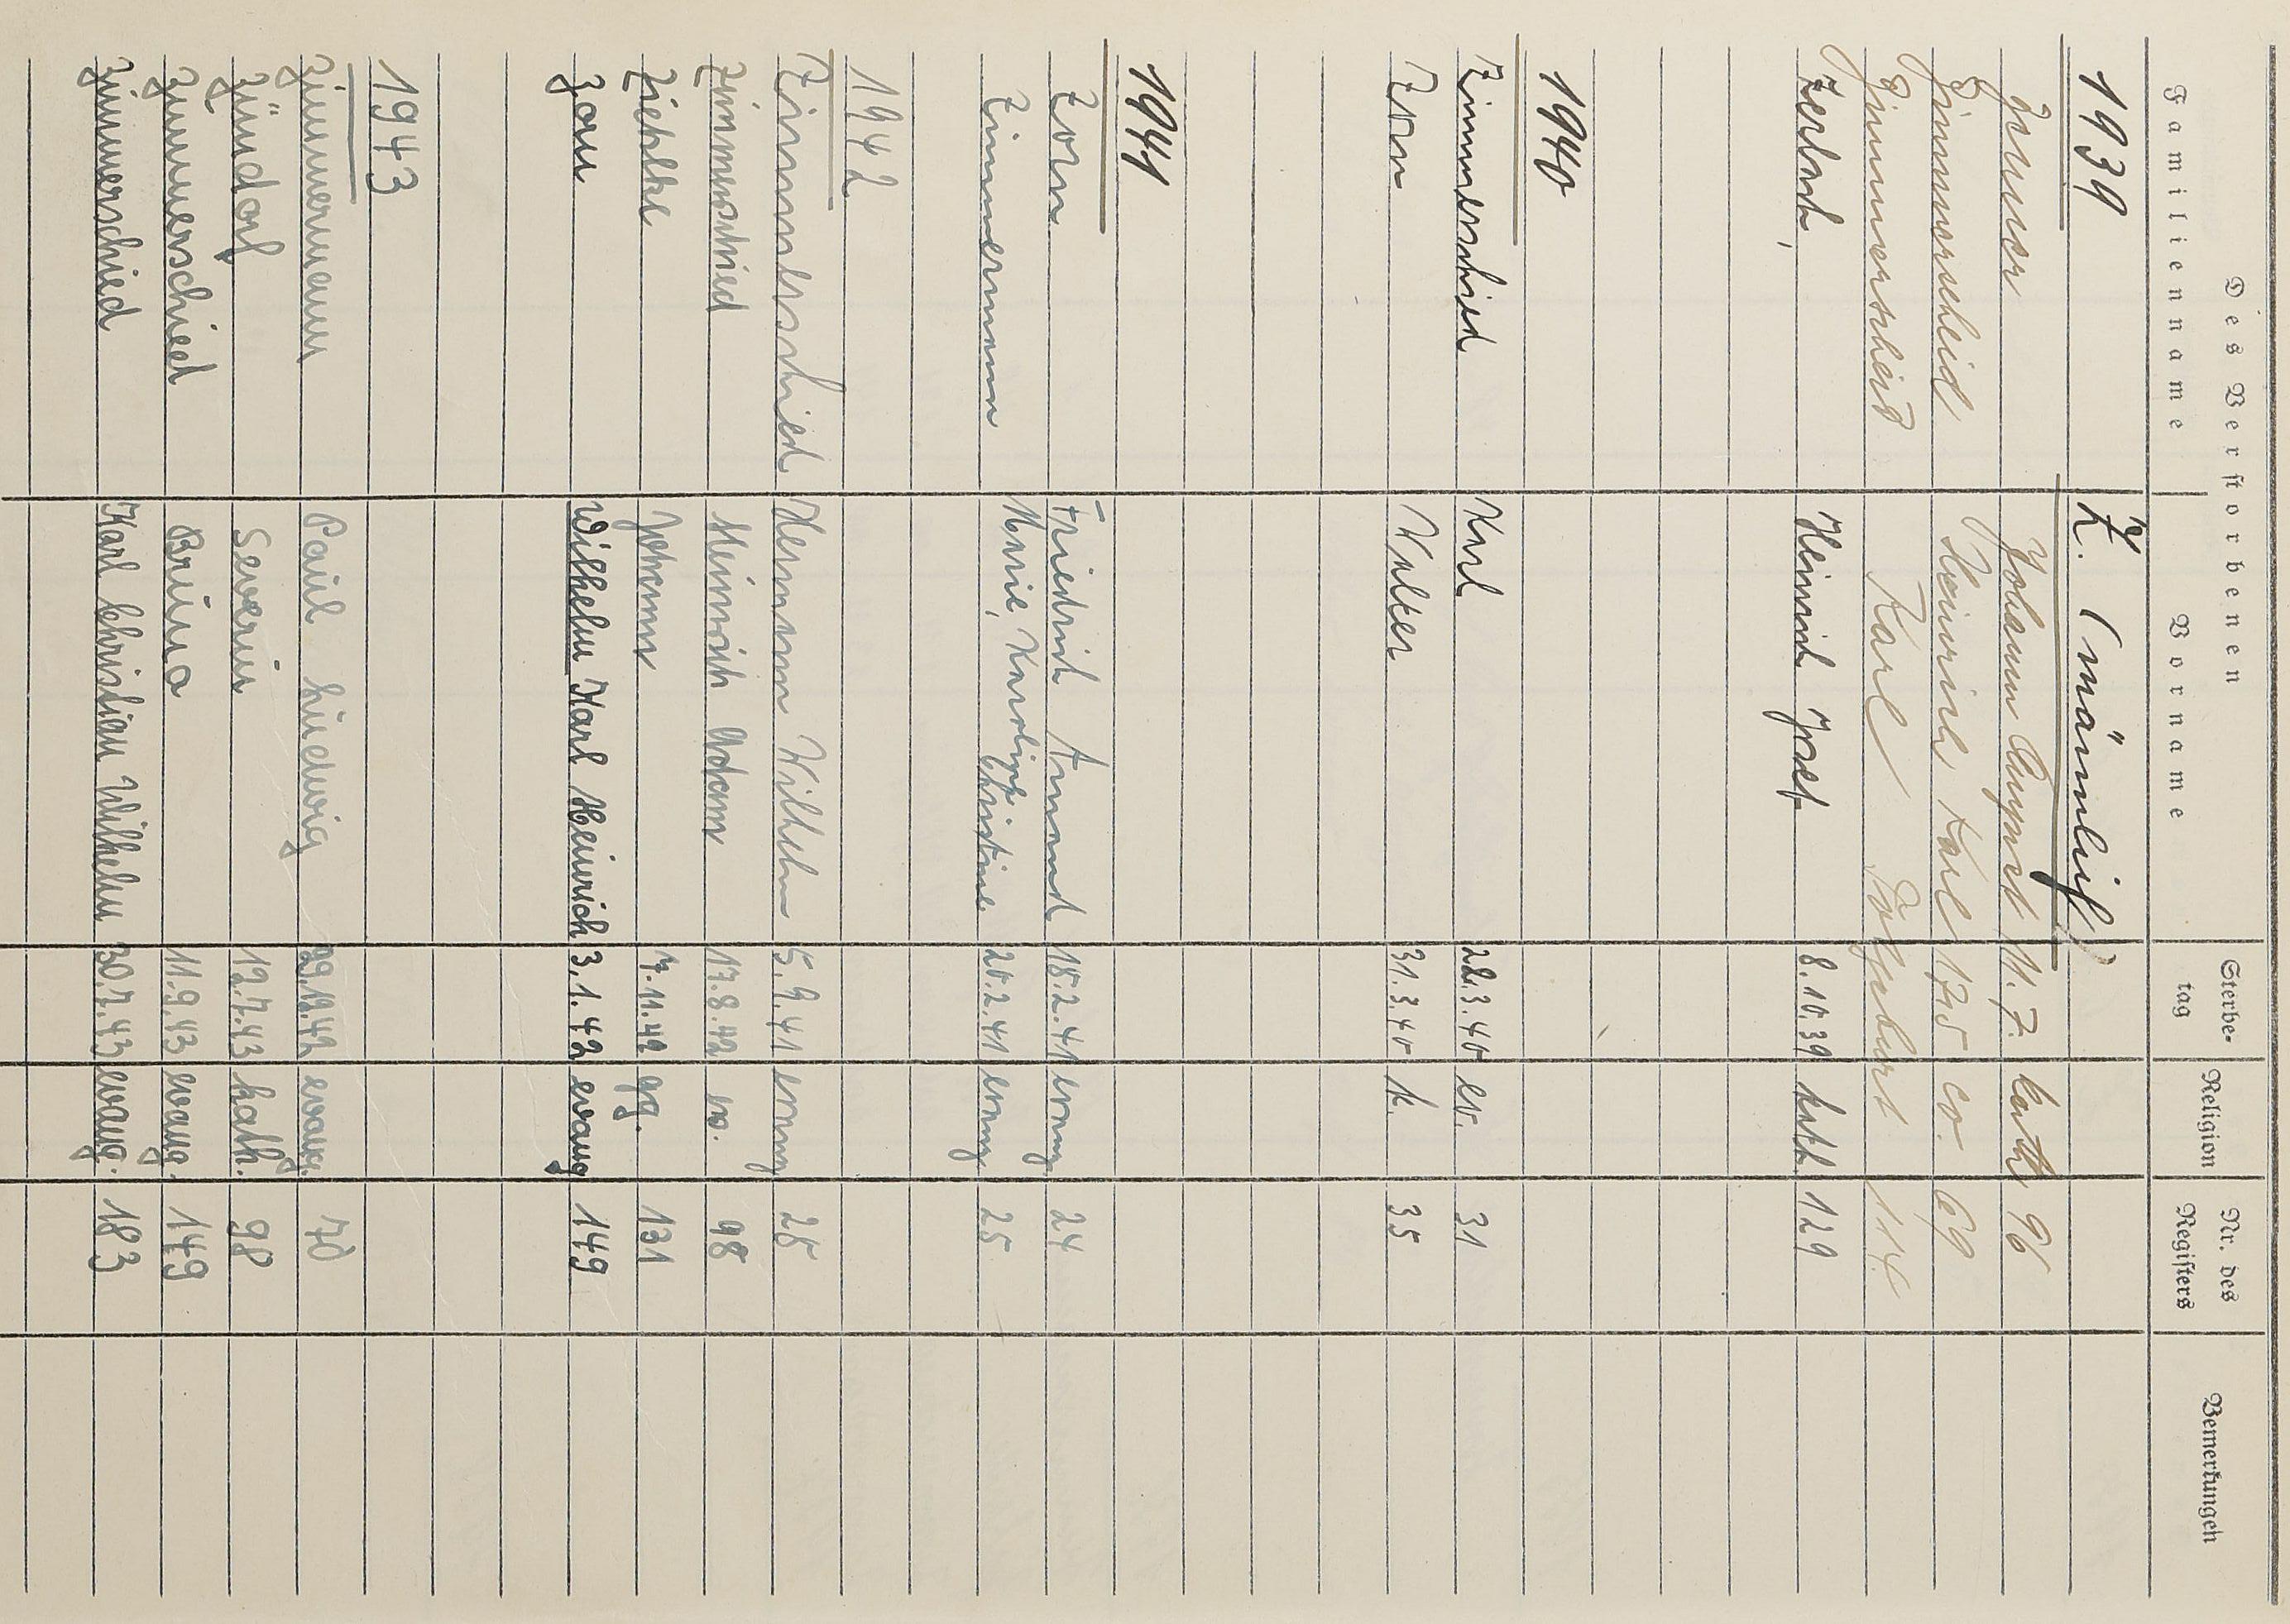 Des Verstorbenen
Familienname Vorname Sterbe-tag Religion Nr. des Registers Bemerkungen
1939 Z. (männlich)
Johann August 11.7. kath 96
Zimmerscheid Heinrich Karl 17.5 ev. 69
Zimmerscheid Karl 114
Zerbach, Heinrich Josef 8.10.39 kath 129
1940
Zimmerschied Karl 22.3.40 ev. 31
Zorn Walter 31.3.40 k. 35
1941
Zorn Friedrich August 18.2.41 evang 24
Zimmermann Marie, Karoline Christine 20.2.41 evang 25
1942
Zimmerschied Hermann Wilhelm 5.9.41 evang 28
Zimmerschied Heinrich Adam 17.8.42 ev. 98
Ziethke Johann 7.11.42 gg. 131
Zorn Wilhelm Karl Heinrich 3.1.42 evang 149
1943
Zimmermann Paul Ludwig evang. 70
Zündorf Severin 12.7.43 kath. 98
Zimmerschied Bruno 11.9.43 evang. 149
Zimmerschied Karl Christian Wilhelm 30.7.43 evang. 183